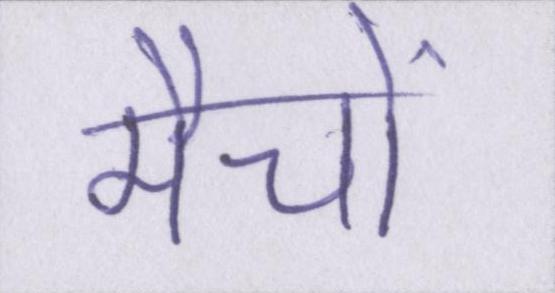 मैचों